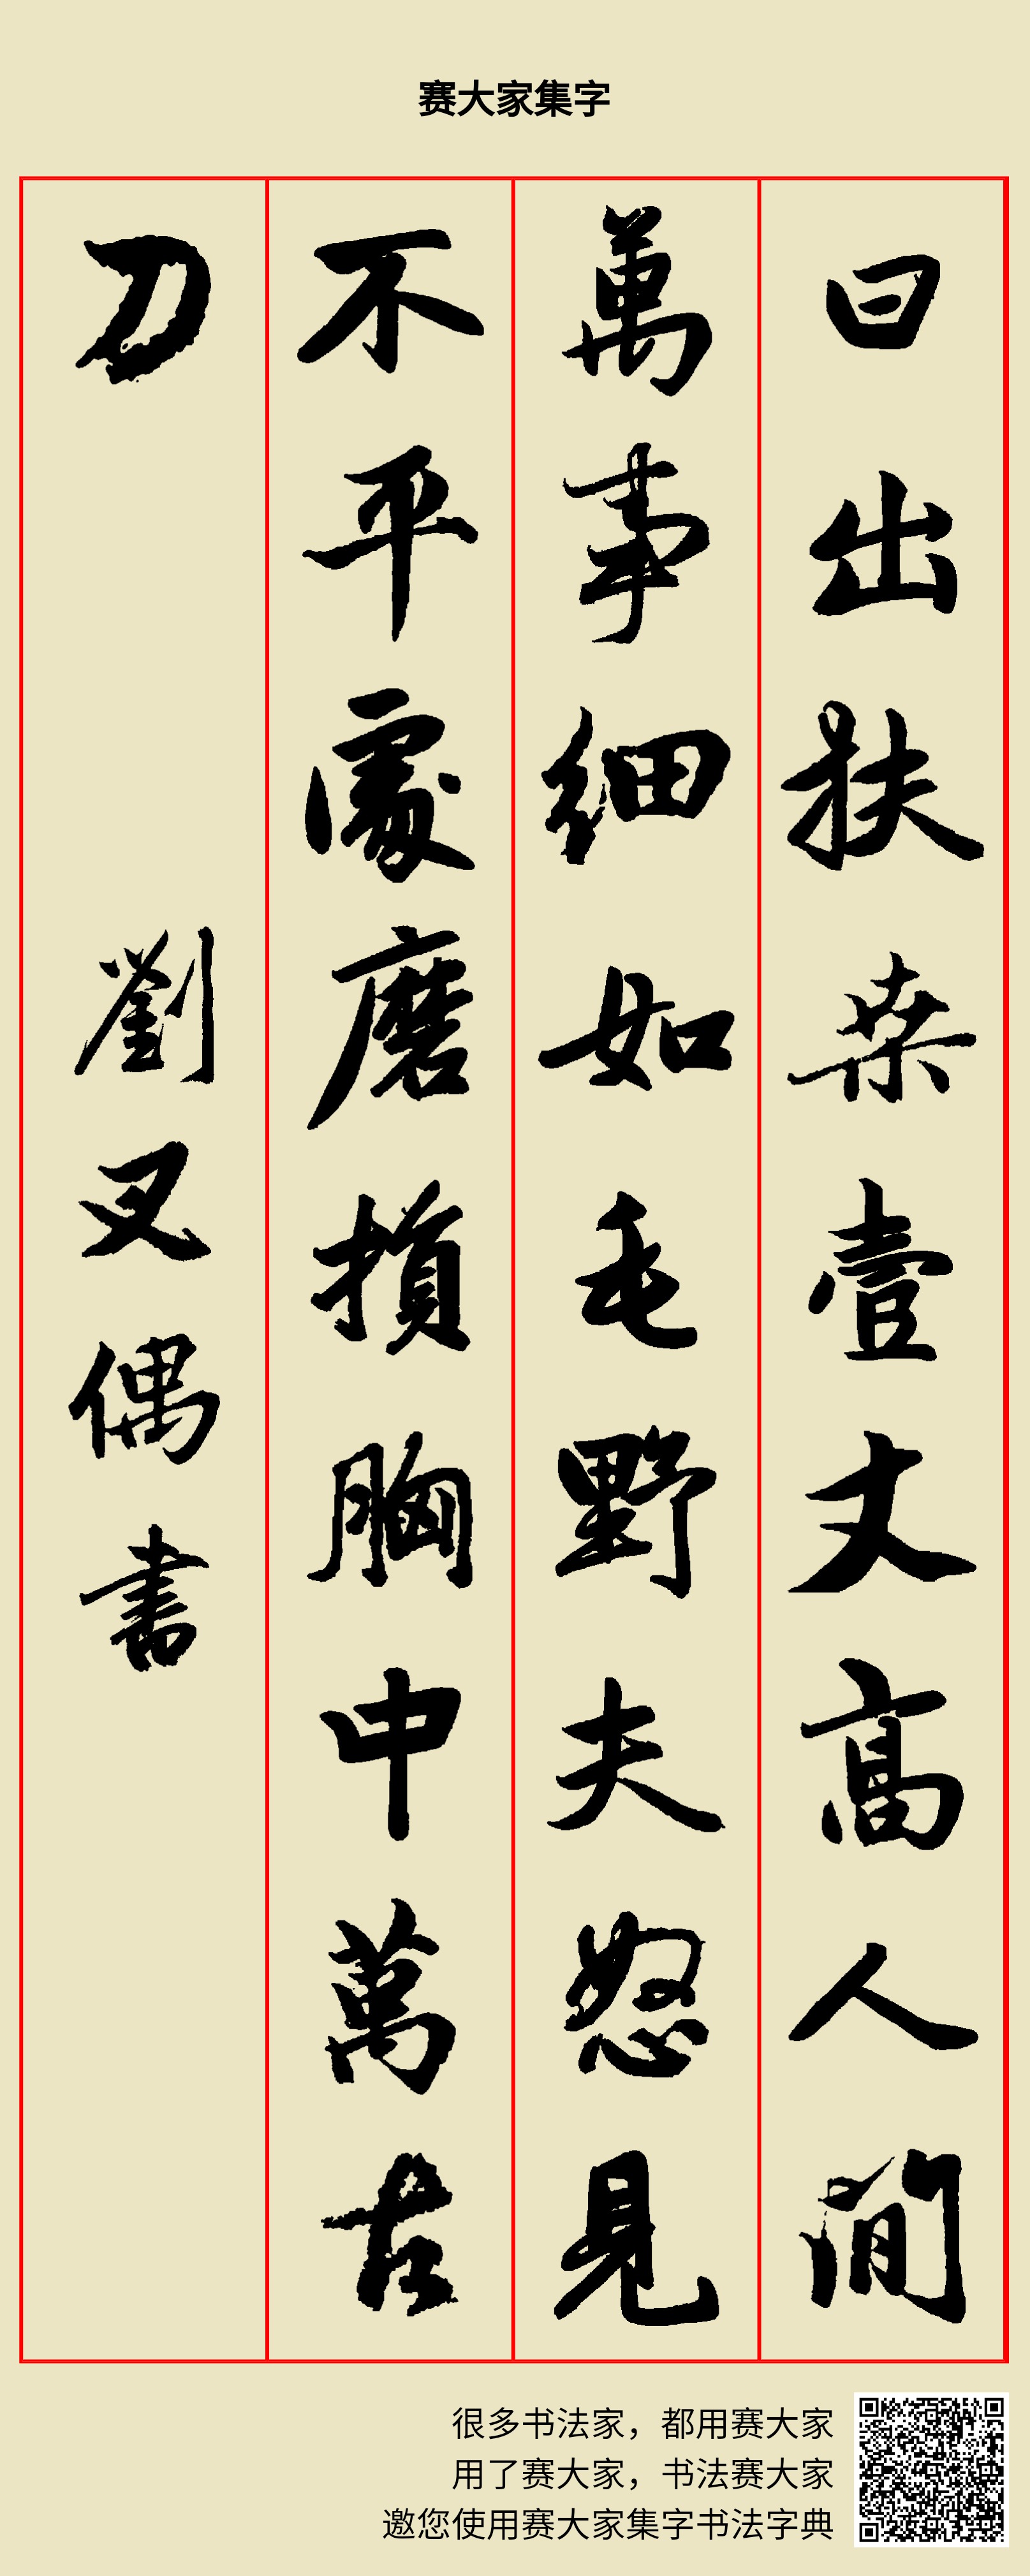 赛大家集字
日出扶桒壹丈高人間
萬事細如毛野夫怒見
不平處磨損胸中萬古
刀
劉叉偶書
很多书法家，都用赛大家
用了赛大家，书法赛大家
邀您使用赛大家集字书法字典